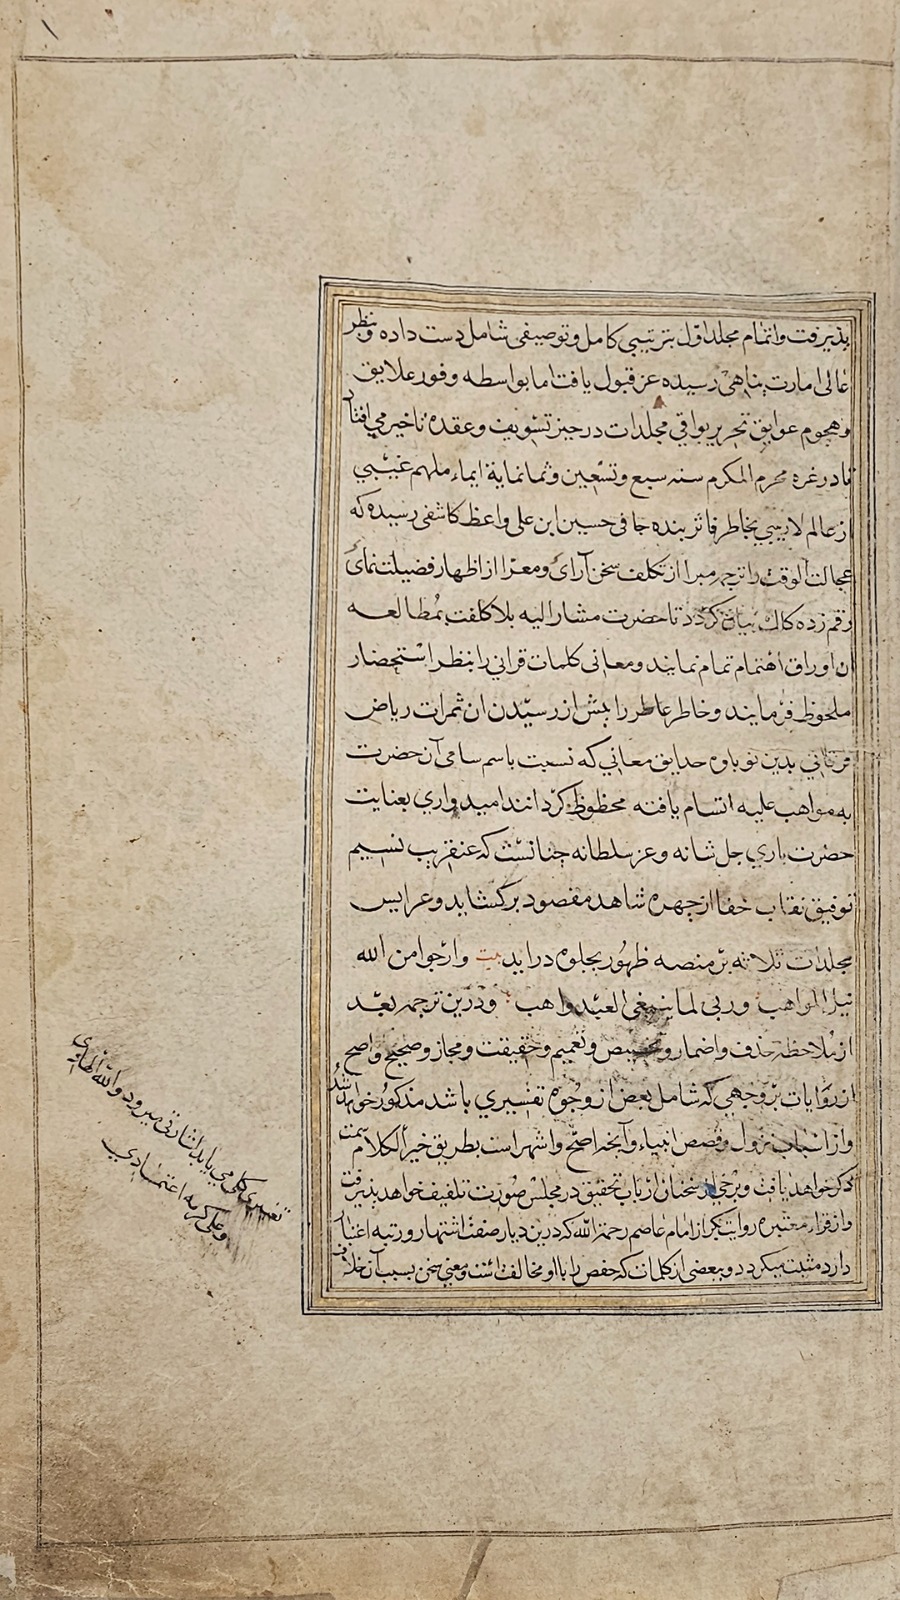 پذیرفت واتمام مجلد اول بترتیبی کامل وتوصیفی شامل دست داده ونظر
عالی امارت پناهی رسیده عز قبول یافت اما بواسطه وفور علایق
وهجوم عوایق تحریر بواقی مجلدات در حیز تسویف وعقده تاخیر می افتاد
تا در غره محرم المکرم سنه سبع وتسعین وثمانمایة ایماء ملهم غیبی
از عالم لاریبی بخاطر فاتر بنده جانی حسین ابن علی واعظ کاشفی رسیده که
عجالت الوقت را ترجمه مبرا از تکلف سخن آرائ ومعرّا از اظهار فضیلت نمائ
رقم زده کلک بیان کردد تا حضرت مشار الیه بلا کلفت بمُطالعه
ان اوراق اهتمام تمام نمایند ومعانی کلمات قرانی را بنظر استحضار
ملحوظ فرمایند وخاطر عاطر را پیش از رسیدن ان ثمرات ریاض
بدین نوباوه حدایق معانی که نسبت باسم سامی آن حضرت
به مواهب علیه اتسام یافته محظوظ کردانند امیدواری بعنایت
حضرت باری جل شانه وعز سلطانه چنانست که عنقریب نسیم
توفیق نقاب خفا از چهره شاهد مقصود برکشاید وعرایس
مجلدات ثلاثه بر منصه ظهور بجلوه دراید بیت وارجوا من الله
نیل المواهب وربی لما ینبغی العبد واهب ودرین ترجمه بعد
از ملاحظه حذف واضمار وتخصیص وتعمیم وحقیقت ومجاز وصحیح واصح
از روایات بر وجهی که شامل بعض از وجوه تفسیری باشد مذکور خواهد شد
واز اسباب نزول وقصص انبیاء وآنچه اصح واشهر است بطریق خیر الکلام سمت
ذکر خواهد یافت وبرخی از سخنان ارباب تحقیق در مجلس صورت تلفیف خواهد پذیرفت
واز قراء معتبره روایت بکر از امام عاصم رحمة الله که درین دیار صفت اشتهار ورتبه اعتبار
دارد مثبت میکردد وبعضی از کلمات که حفص را با او مخالفت است ومعنی سخن بسبب آن خلاف
می باید اشارتی میرود والله الهادی
وعلی کرمه اعتمادی